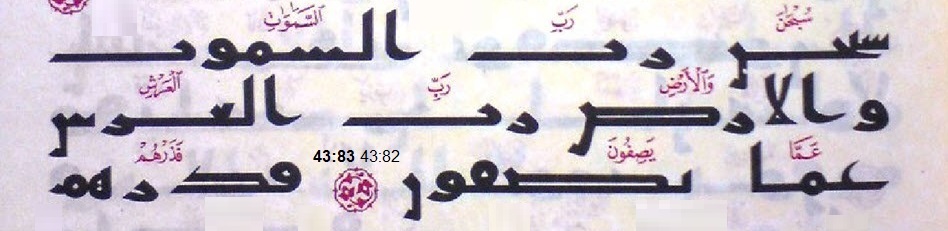 سُبْحَٰنَ رَبِّ ٱلسَّمَٰوَٰتِ
سبحن رب السموت
وَٱلْأَرْضِ رَبِّ ٱلْعَرْشِ
والارض رب العرش
عَمَّا يَصِفُونَ 43:82 43:83 فَذَرْهُمْ
عما يصفون فذرهم